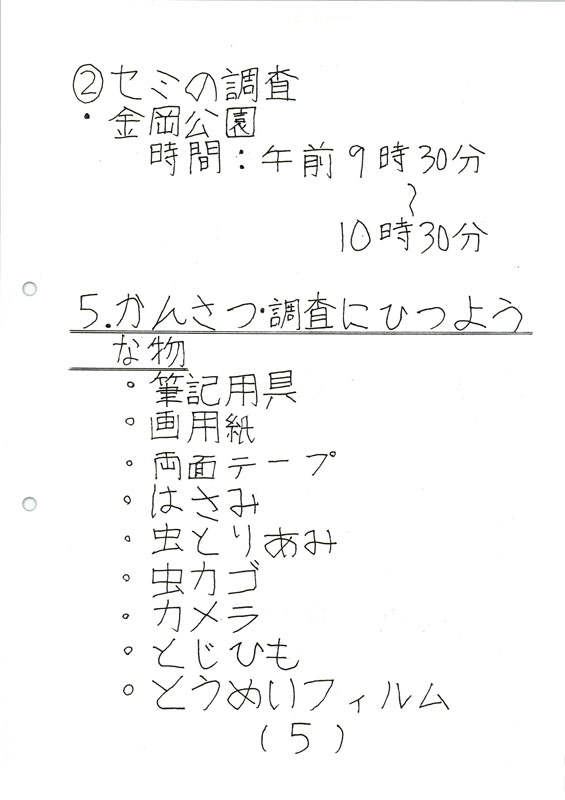 ②セミの調査
・金岡公園
時間：午前9時30分
〜
10時30分
5.かんさつ・調査にひつよう
な物
・筆記用具
・画用紙
・両面テープ
・はさみ
・虫とりあみ
・虫カゴ
・カメラ
・とじひも
・とうめいフィルム
(5)